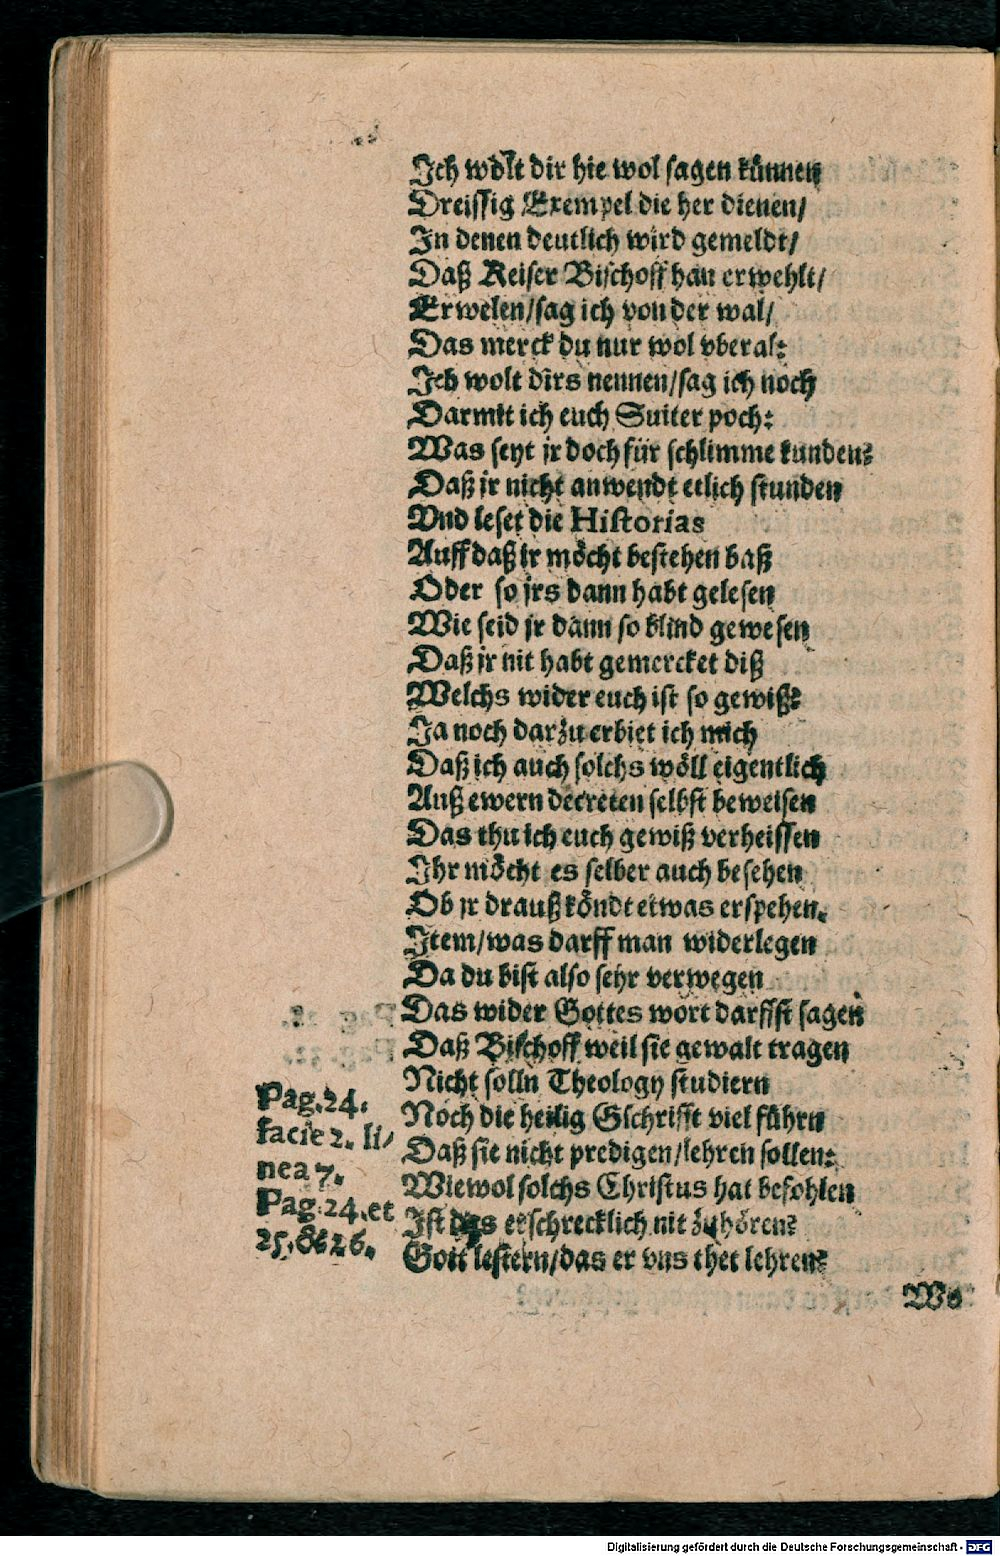 Ich wölt dir hie wol sagen künnen
Dreissig Exempel die her dienen/
In denen deutlich wird gemeldt/
Daß Keiser Bischoff han erwehlt/
Erwelen/sag ich von der wal/
Das merck du nur wol vberal:
Ich wolt dirs nennen/sag ich noch
Darmit ich euch Suiter poch:
Was seyt jr doch für schlimme kunden?
Daß jr nicht anwendt etlich stunden
Vnd leset die Historias
Auff daß jr möcht bestehen baß
Oder so jrs dann habt gelesen
Wie seid jr dann so blind gewesen
Daß jr nit habt gemercket diß
Welchs wider euch ist so gewiß?
Ja noch darzu erbiet ich mich
Daß ich auch solchs wöll eigentlich
Auß ewern decreten selbst beweisen
Das thu ich euch gewiß verheissen
Ihr möcht es selber auch besehen
Ob jr drauß köndt etwas erspehen.
Item/was darff man widerlegen
Da du bist also sehr verwegen
Das wider Gottes wort darffst sagen
Daß Bischoff weil sie gewalt tragen
Nicht solln Theology studiern
Noch die heilig Gschrifft viel führn
Daß sie nicht predigen/lehren sollen:
Wiewol solchs Christus hat befohlen
Ist das erschrecklich nit zu hören?
Gott lestern/das er vns thet lehren?
Pag.24.
facie 2. li/
nea 7.
Pag.24.et
25.&26.
Wo
Digitalisierung gefördert durch die Deutsche Forschungsgemeinschaft - DFG